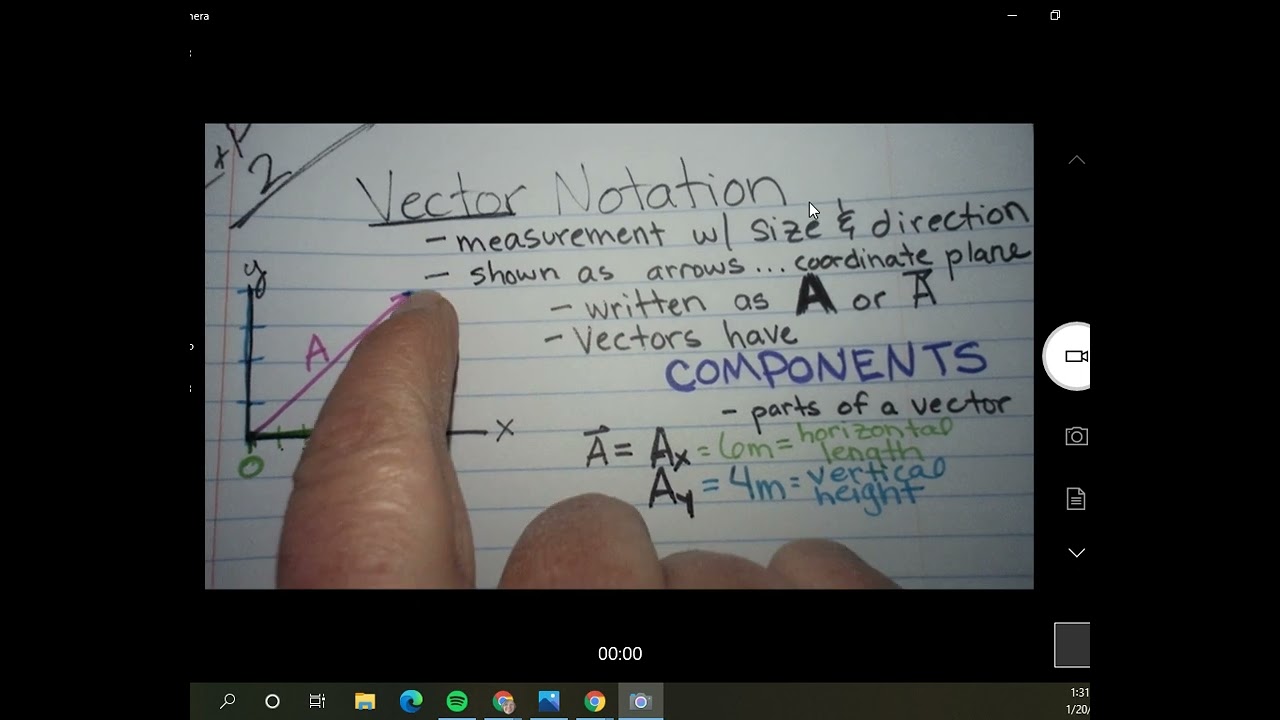 nera
x
2
Vector Notation
- measurement w/ size & direction
- shown as arrows... coordinate plane
- written as A or A⃗
- Vectors have
COMPONENTS
- parts of a vector
A⃗ = Ax = 6m = horizontal length
Ay = 4m = vertical height
y
A
x
O
00:00
1:31
1/20/